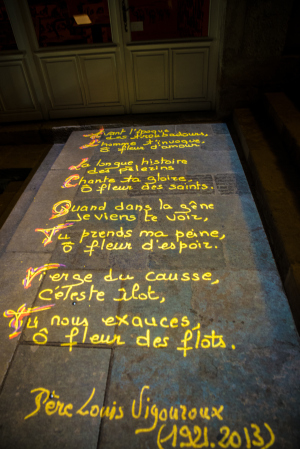 Avant l'époque
des troubadours,
L'homme t'invoque,
Ô fleur d'amour
La longue histoire
des pèlerins
Chante ta gloire,
Ô fleur des saints.
Quand dans la gêne
je viens te voir,
Tu prends ma peine,
Ô fleur d'espoir.
Vierge du causse,
Céleste îlot,
Tu nous exauces,
Ô fleur des flots.
Père Louis Vigouroux
(1921.2013)